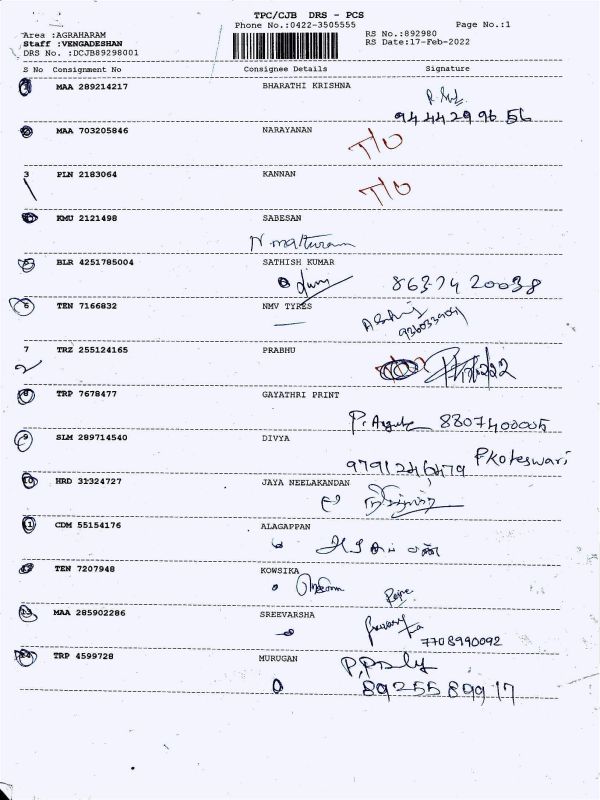 TPC/CJB DRS - PCS
Phone No.:0422-3505555
Page No.:1
Area :AGRAHARAM
Staff :VENGADESHAN
DRS No. :DCJB89298001
RS No.:892980
RS Date:17-Feb-2022
S No Consignment No Consignee Details Signature
MAA 289214217 BHARATHI KRISHNA
94442 99656
MAA 703205846 NARAYANAN
T/O
3 PLN 2183064 KANNAN
T/O
KMU 2121498 SABESAN
N mathuram
5 BLR 4251785004 SATHISH KUMAR
86374 20038
6 TEN 7166832 NMV TYRES
7 TRZ 255124165 PRABHU
8 TRP 7678477 GAYATHRI PRINT
8807400005
9 SLM 289714540 DIVYA
9791246479 P.Koteswari
10 HRD 31324727 JAYA NEELAKANDAN
11 CDM 55154176 ALAGAPPAN
TEN 7207948 KOWSIKA
13 MAA 285902286 SREEVARSHA
7708990092
14 TRP 4599728 MURUGAN
89255 89917